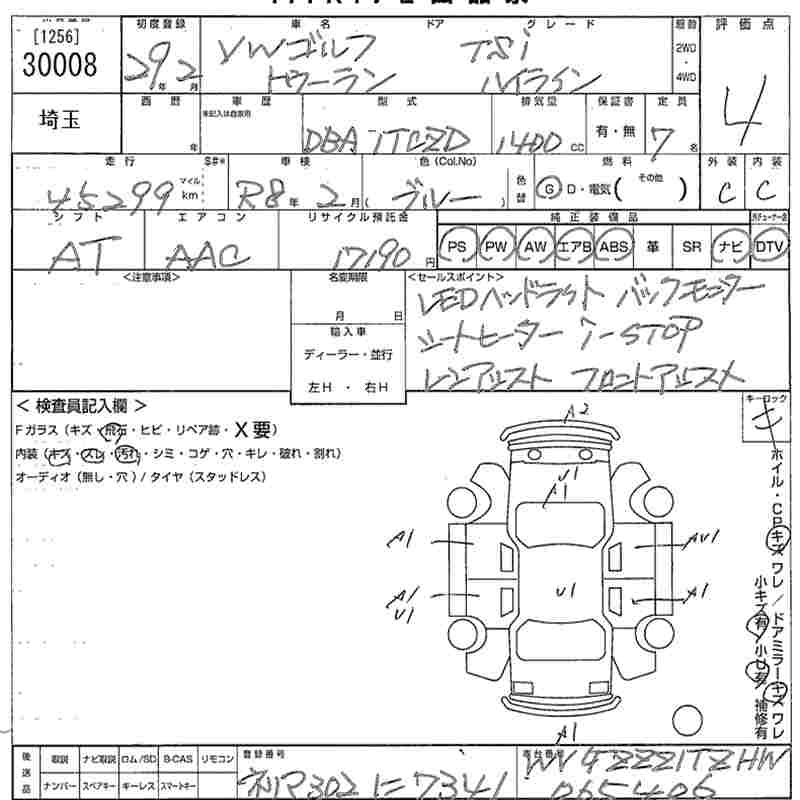 [1256]
30008
埼玉
初度登録
29年2月
車名
ドア
グレード
VWゴルフ
トゥーラン
TSi
ハイライン
駆動
2WD
・
4WD
評価点
4
西暦
年
車歴
未記入は自家用
型式
DBA 1TCZD
排気量
1400cc
保証書
有・無
定員
7名
走行
45299
マイル
km
S#*
車検
R8年2月
色(Col.No)
(ブルー)
色替
燃料
G D・電気( その他 )
外装
C
内装
C
シフト
AT
エアコン
AAC
リサイクル預託金
17190円
純正装備品
PS PW AW エアB ABS 革 SR ナビ
DTV
<注意事項>
名変期限
月 日
輸入車
ディーラー・並行
左H ・ 右H
<セールスポイント>
LEDヘッドライト バックモニター
シートヒーター I-STOP
レーンアシスト フロントアシスト
< 検査員記入欄 >
Fガラス(キズ・飛石・ヒビ・リペア跡・X要)
内装(キズ・スレ・汚れ・シミ・コゲ・穴・キレ・破れ・割れ)
オーディオ(無し・穴)/タイヤ(スタッドレス)
キーロック
キ
ホイル・CPキズワレ/ドアミラーキズワレ
小キズ有/小U有/補修有
A2
U1
A1
A1
AU1
A1
U1
U1
A1
A1
後送品
取説 ナビ取説 ロム/SD B-CAS リモコン
ナンバー スペアキー キーレス スマートキー
登録番号
302 に 7341
車台番号
WVGZZZ1TZHW
065406